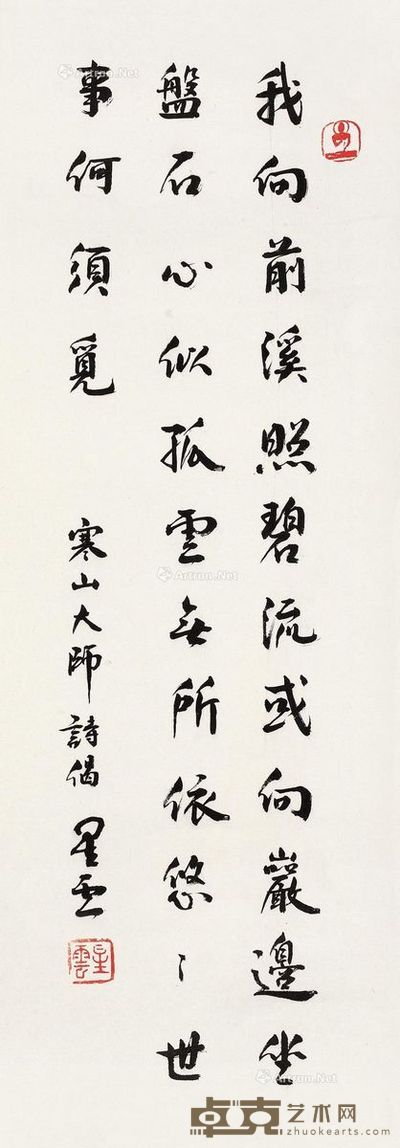 我向前溪照碧流或向巖邊坐
盤石心似孤雲無所依悠〻世
事何須覓
寒山大師詩偈 星雲
星雲
卓克艺术网
zhuokearts.com
Artron.Net
Artron.Net
Artron.Net
Artron.Net